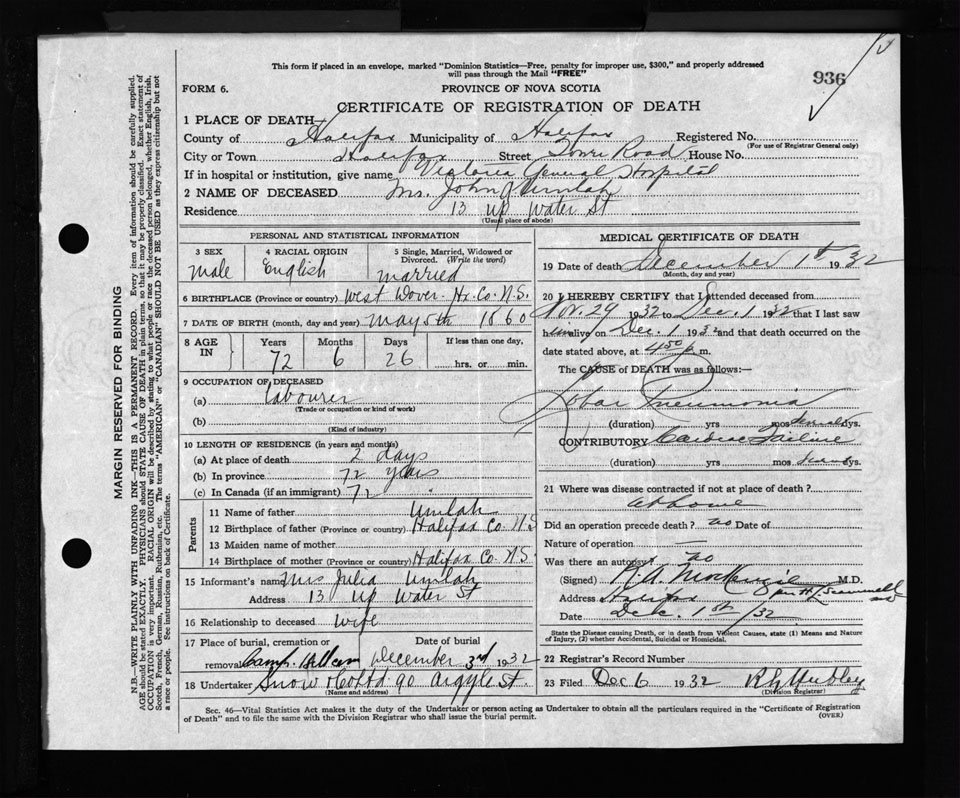 This form if placed in an envelope, marked "Dominion Statistics—Free, penalty for improper use, $300," and properly addressed
will pass through the Mail "FREE"
936
FORM 6.
PROVINCE OF NOVA SCOTIA
CERTIFICATE OF REGISTRATION OF DEATH
1 PLACE OF DEATH—
County of Halifax Municipality of Halifax Registered No.
(For use of Registrar General only)
City or Town Halifax Street Tower Road House No.
If in hospital or institution, give name Victoria General Hospital
2 NAME OF DECEASED John Umlah
Residence 13 up Water St
(Usual place of abode)
PERSONAL AND STATISTICAL INFORMATION
3 SEX 4 RACIAL ORIGIN 5 Single, Married, Widowed or
Divorced. (Write the word)
Male English Married
6 BIRTHPLACE (Province or country) West Dover Hx. Co. N.S.
7 DATE OF BIRTH (month, day and year) May 5th 1860
8 AGE
IN
Years Months Days If less than one day,
72 6 26 hrs. or min.
9 OCCUPATION OF DECEASED
(a) Labourer
(Trade or occupation or kind of work)
(b)
(Kind of industry)
10 LENGTH OF RESIDENCE (in years and months)
(a) At place of death 2 days
(b) In province 72 years
(c) In Canada (if an immigrant) 72
Parents
11 Name of father Umlah
12 Birthplace of father (Province or country) Halifax Co. N.S
13 Maiden name of mother
14 Birthplace of mother (Province or country) Halifax Co. N.S.
15 Informant's name Mrs Julia Umlah
Address 13 up Water St
16 Relationship to deceased wife
17 Place of burial, cremation or Date of burial
removal Camp Hill Cem December 3rd 1932
18 Undertaker Snow & Co Ltd 90 Argyle St.
(Name and address)
MEDICAL CERTIFICATE OF DEATH
19 Date of death December 1st 1932
(Month, day and year)
20 I HEREBY CERTIFY that I attended deceased from
Nov. 29 1932 to Dec. 1 1932 that I last saw
him alive on Dec. 1 1932 and that death occurred on the
date stated above, at 4.50 p. m.
The CAUSE of DEATH was as follows:—
Lobar Pneumonia
(duration) yrs mos several dys.
CONTRIBUTORY Cardiac Failure
(duration) yrs mos dys.
21 Where was disease contracted if not at place of death?
at home
Did an operation precede death? no Date of
Nature of operation —
Was there an autopsy? no
(Signed) M.D.
Address Halifax
Date Dec. 1st /32
State the Disease causing Death, or in death from Violent Causes, state (1) Means and Nature
of Injury, (2) whether Accidental, Suicidal or Homicidal.
22 Registrar's Record Number
23 Filed Dec 6 1932
(Division Registrar)
Sec. 46—Vital Statistics Act makes it the duty of the Undertaker or person acting as Undertaker to obtain all the particulars required in the "Certificate of Registration
of Death" and to file the same with the Division Registrar who shall issue the burial permit. (OVER)
MARGIN RESERVED FOR BINDING
N.B.—WRITE PLAINLY WITH UNFADING INK—THIS IS A PERMANENT RECORD. Every item of information should be carefully supplied.
AGE should be stated EXACTLY. PHYSICIANS should STATE CAUSE OF DEATH in plain terms, so that it may be properly classified. Exact statement of
OCCUPATION is very important. RACIAL ORIGIN will be described by stating to what people or race the deceased person belonged, whether English, Irish,
Scotch, French, German, Russian, Ruthenian, etc. The terms "AMERICAN" or "CANADIAN" SHOULD NOT BE USED as they express citizenship but not
a race or people. See instructions on back of Certificate.